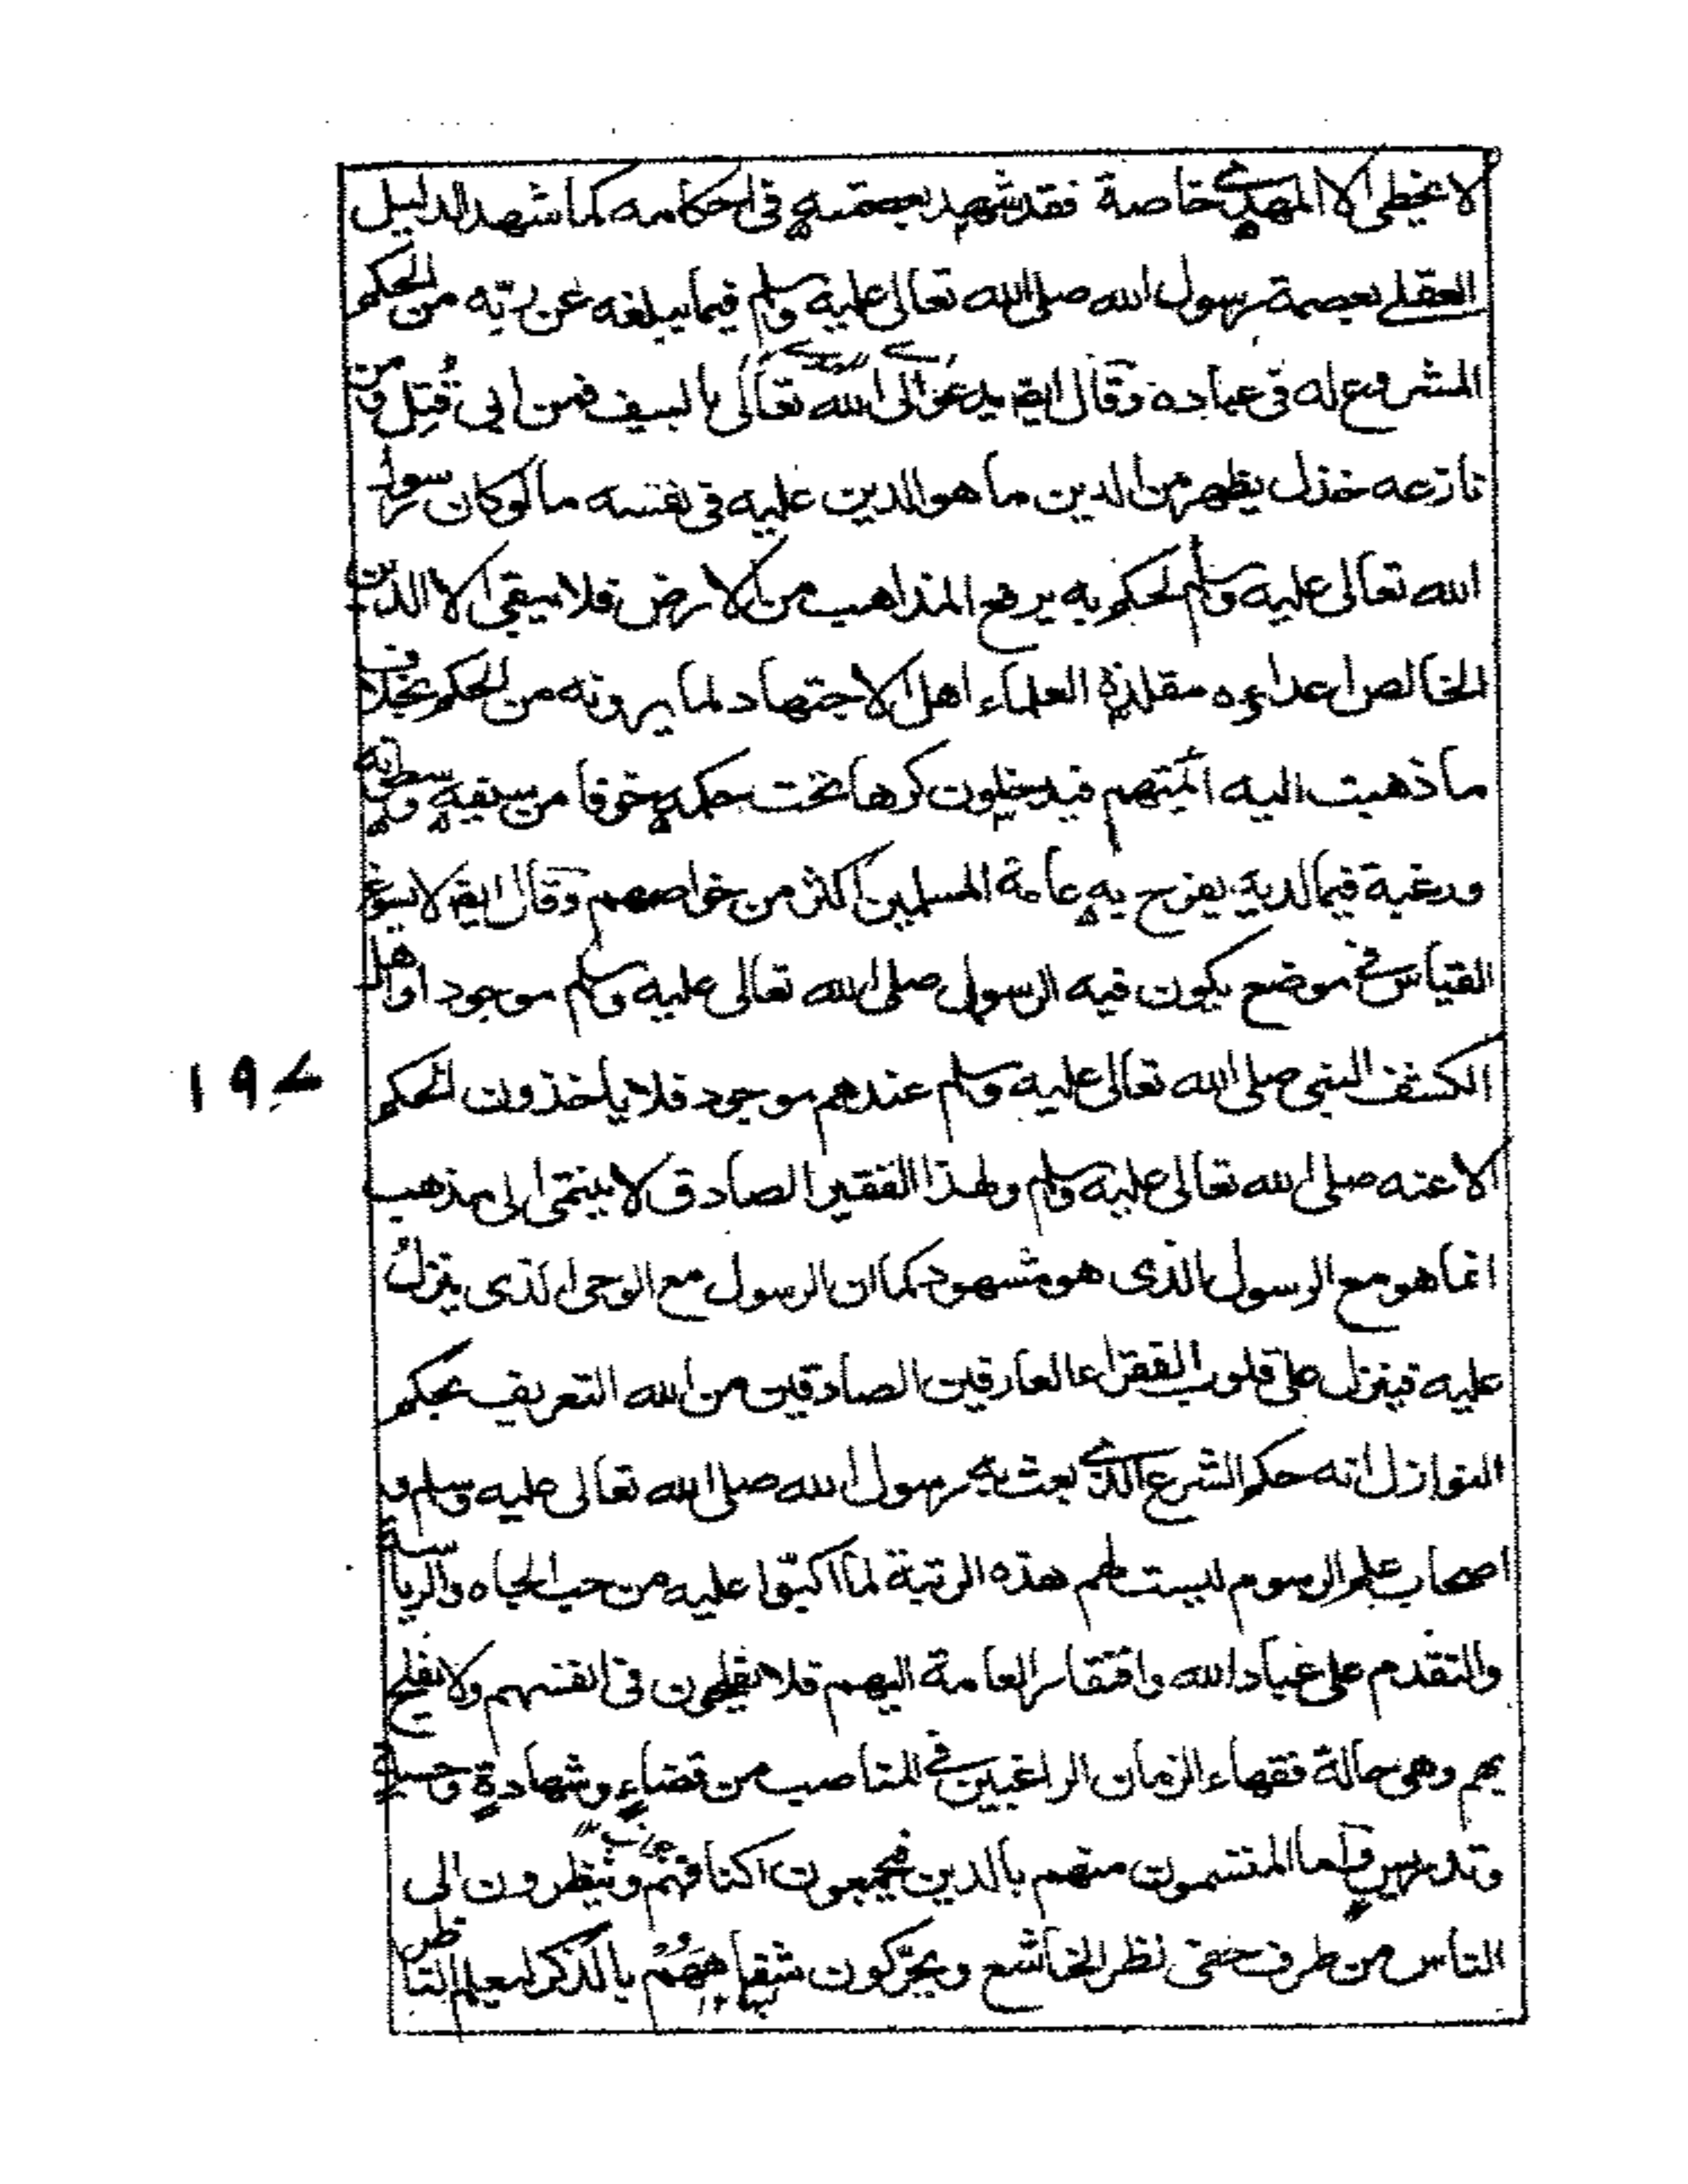 لا يخطى الا المهدي خاصة فقد شهد بعصمته فى احكامه كما شهد الدليل
العقلے بعصمة رسول الله صلى الله تعالى عليه وسلم فيما يبلغه عن ربّه من الحكم
المشروع له فى عباده وقال ايضا يدعو الى الله تعالى بالسيف فمن ابى قُتِل ومن
نازعه خذل يظهر من الدين ما هو الدين عليه فى نفسه ما لو كان رسول
الله تعالى عليه وسلم لحكم به يرفع المذاهب من الارض فلا يبقى الا الدين
الخالص اعداوه مقلدة العلماء اهل الاجتهاد لما يرونه من الحكم بخلاف
ما ذهبت اليه ائمتهم فيدخلون كرها تحت حكمه خوفا من سيفه وسطوته
ورغبة فيما لديه يفرح به عامة المسلمين اكثر من خواصهم وقال ايضا لا يسوغ
القياس فے موضع يكون فيه الرسول صلى الله تعالى عليه وسلم موجود او اهل
الكشف النبى صلى الله تعالى عليه وسلم عندهم موجود فلا ياخذون الحكم
۱۹۷
الا عنه صلى الله تعالى عليه وسلم ولهذا الفقير الصادق لا ينتمى الى مذهب
انما هو مع الرسول الذى هو مشهود كما ان الرسول مع الوحى الذى ينزل
عليه فينزل على قلوب الفقراء العارفين الصادقين من الله التعريف بحكم
النوازل انه حكم الشرع الذے بعث به رسول الله صلى الله تعالى عليه وسلم و
اصحاب علم الرسوم ليست لهم هذه الرتبة لما اكبّوا عليه من حب الجاه والرياسة
والتقدم على عباد الله وافتقار العامة اليهم فلا يفلحون فى انفسهم ولا يفلح
بهم وهى حالة فقهاء الزمان الراغبين فے المناصب من قضاءٍ وشهادةٍ وحسبة
وتدريسٍ واما المتنسمون منهم بالدين فيجمعون اكنافهم وينظرون الى
الناس من طرف خفى نظر الخاشع ويحرّكون شفاههم بالذكر ليعلم الناظر